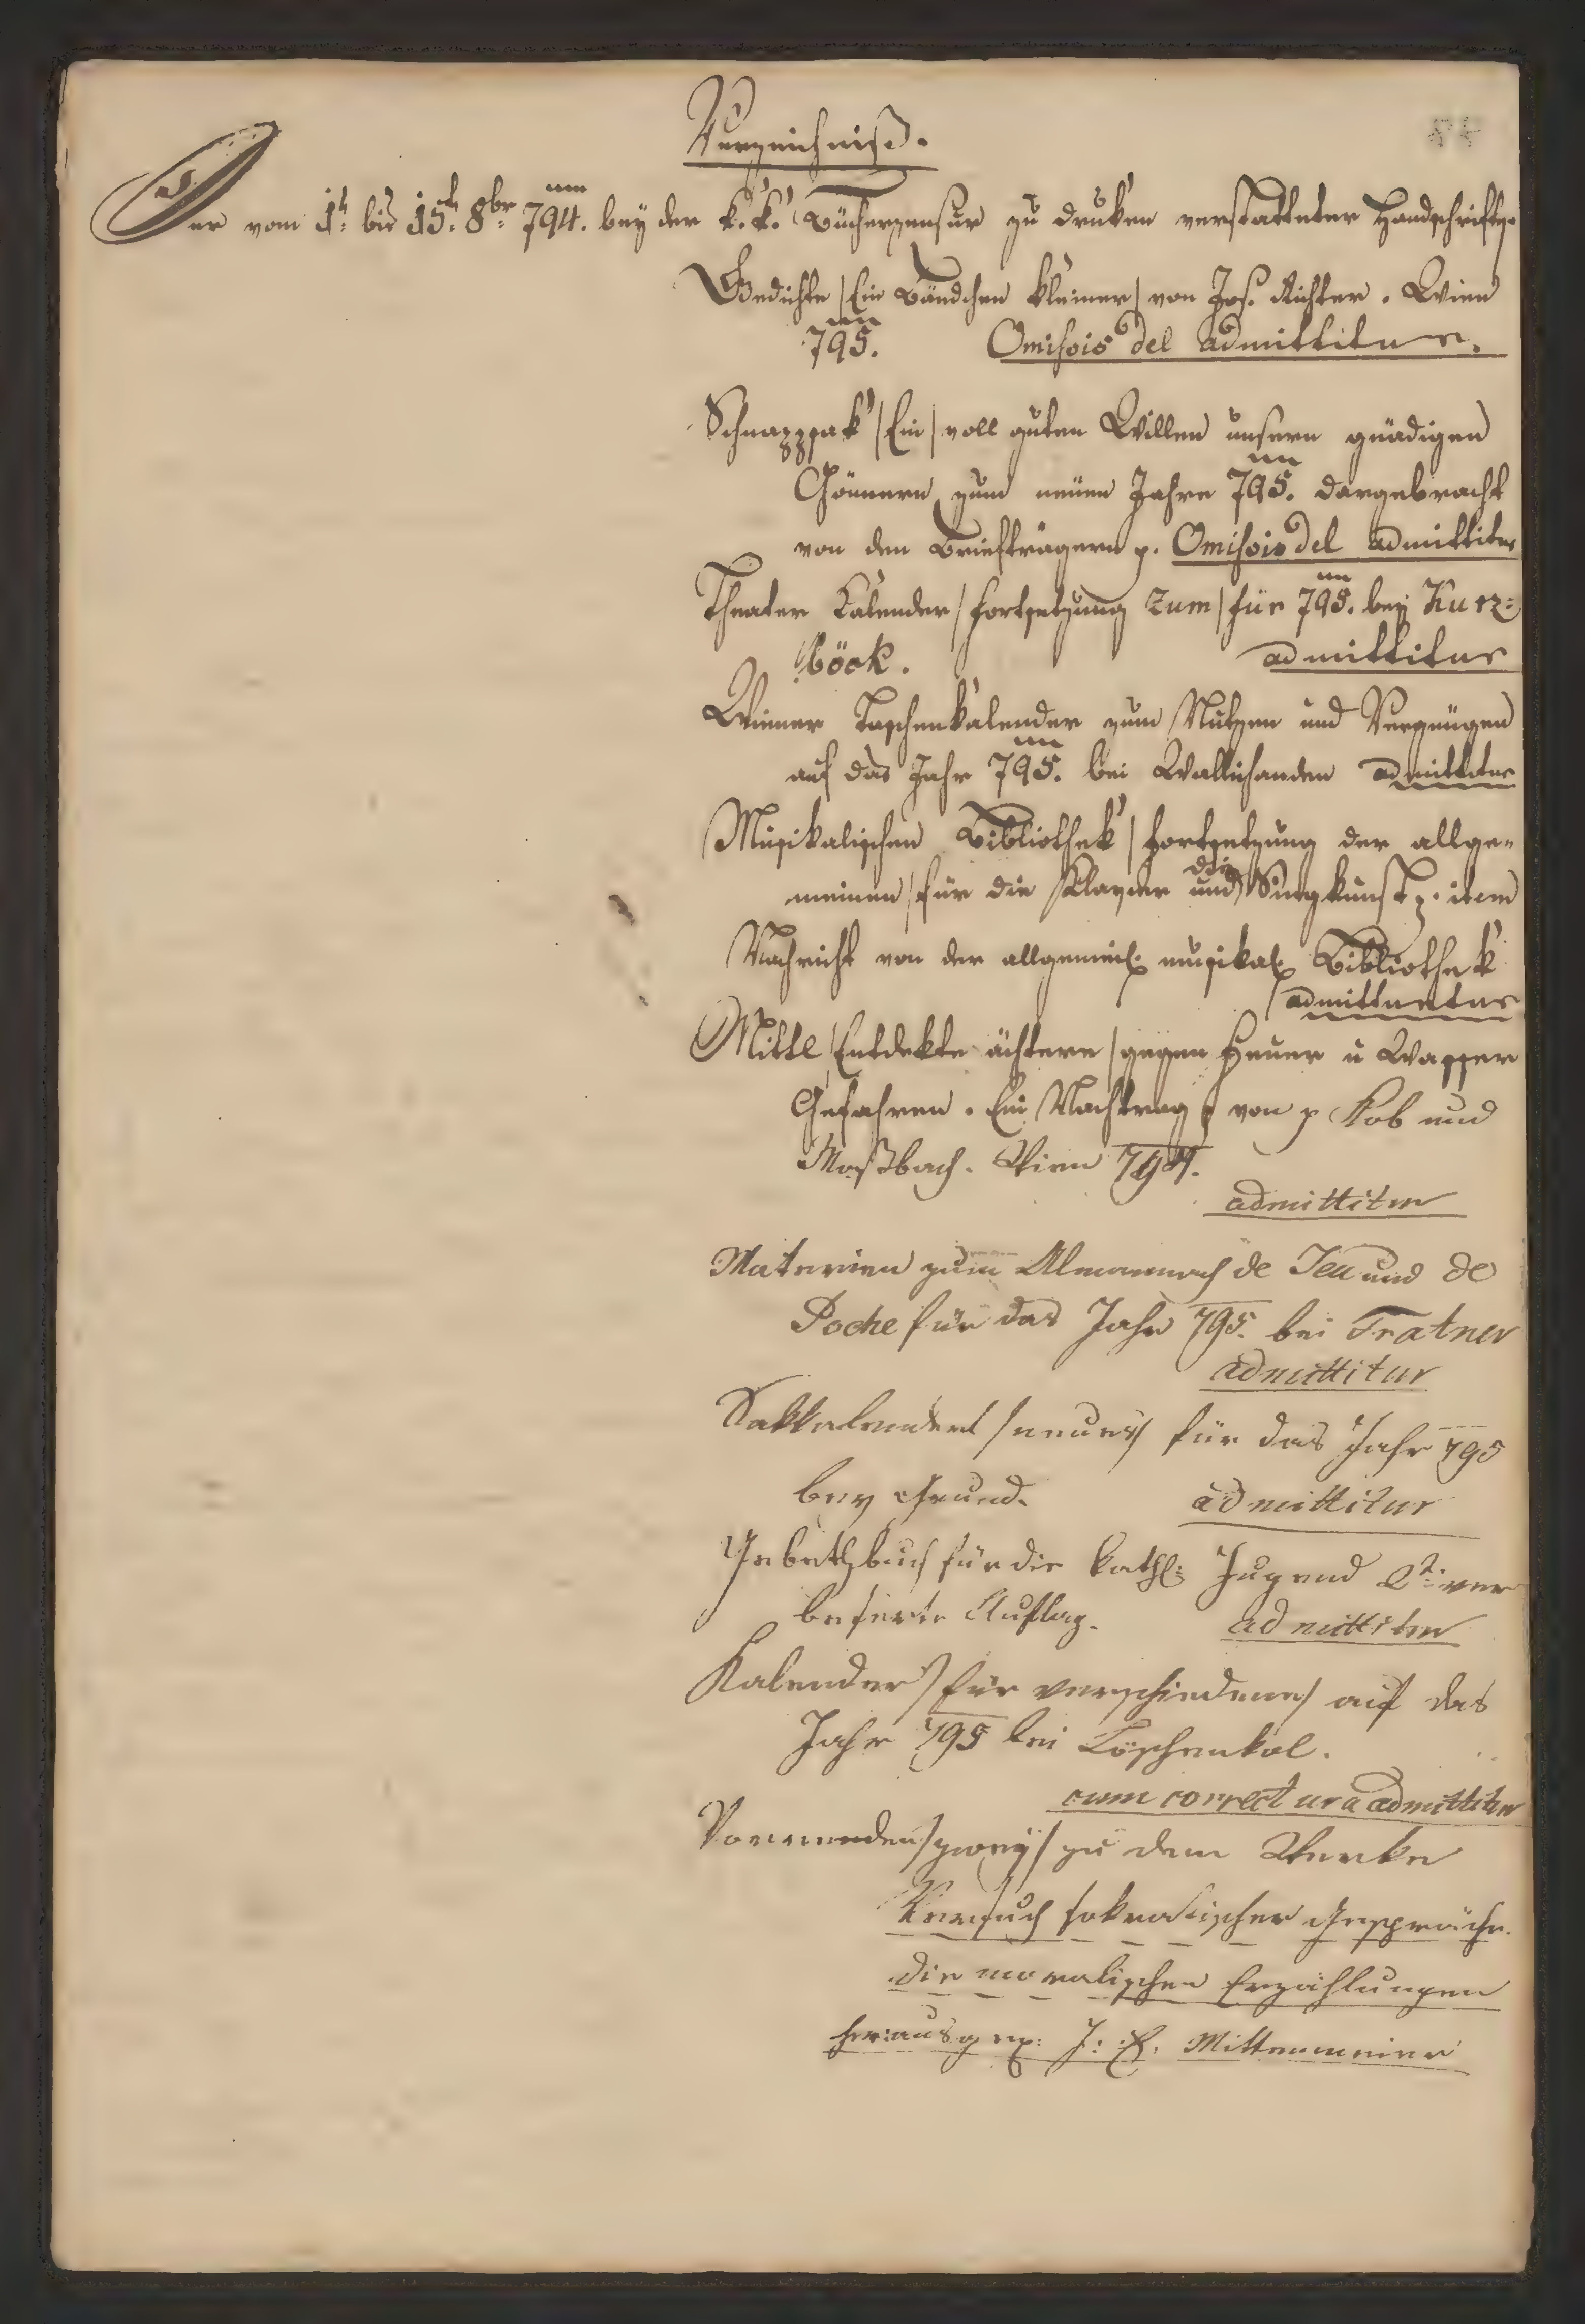 Verzeichniß.
Der vom 1t. bis 15t. 8br. 794. bey der k. k. Bücherzensur zu druken verstatteter Handschriften.
Gedichte /:Ein Bändchen kleiner:/ von Jos. Richter. Wien
795. Omissis del admittitur.
Schnappsak /Ein/ voll guten Willen unsern gnädigen
Gönnern zum neuen Jahre 795. dargebracht
von den Briefträgern p. Omissis del admittitur
Theater Kalender /Fortsetzung zum/ für 795. bey Kurz=
böck. admittitur
Wiener Taschenkalender zum Nutzen und Vergnügen
auf das Jahr 795. bei Wallishauser admittitur
Musikalischen Bibliothek /Fortsetzung der allge-
meinen/ für die Klavier und die Singkunst p. item
Nachricht von der allgemein. musikal. Bibliothek
admittuntur
Mittel /Entdekte ächtere/ gegen Feuer u Wasser
Gefahren. Ein Nachtrag p von p Kob und
Moßbach. Wien 794.
admittitur
Materien zum Almanach de Jeu und de
Poche für das Jahr 795. bei Tratner
admittitur
Sakkalenderl /neues/ für das Jahr 795
bey Grund. admittitur
Gebethbuch für die kathl: Jugend 2t. ver
besserte Auflag. admittitur
Kalender /für verschiedene/ auf das
Jahr 795 bei Löschenkol.
cum correctura admittitur
Vorreden /zwey/ zu dem Werke
Versuch sokratischer Gespräche.
die moralischen Erzählungen
herausgeg: J: E: Mittermeier